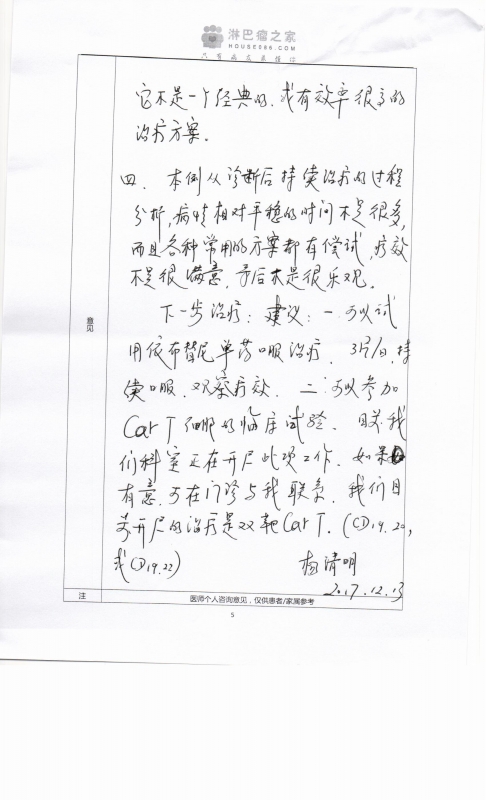 淋巴瘤之家
HOUSE086.COM
它不是一个经典的、或有效率很高的
治疗方案。
四、本例从诊断后持续治疗的过程
分析,病情相对平稳的时间不是很多,
而且各种常用的方案都有尝试,疗效
不是很满意,予后不是很乐观。
下一步治疗:建议:一、可以试
用依布替尼单药口服治疗,3片/日,持
续口服,观察疗效。二、可以参加
Car T细胞的临床试验。目前我
们科室正在开展此项工作。如果
有意,可在门诊与我联系。我们目
前开展的治疗是双靶Car T.(CD19.20,
或CD19.22)
杨清明
2017.12.13
意见
注
医师个人咨询意见,仅供患者/家属参考
5